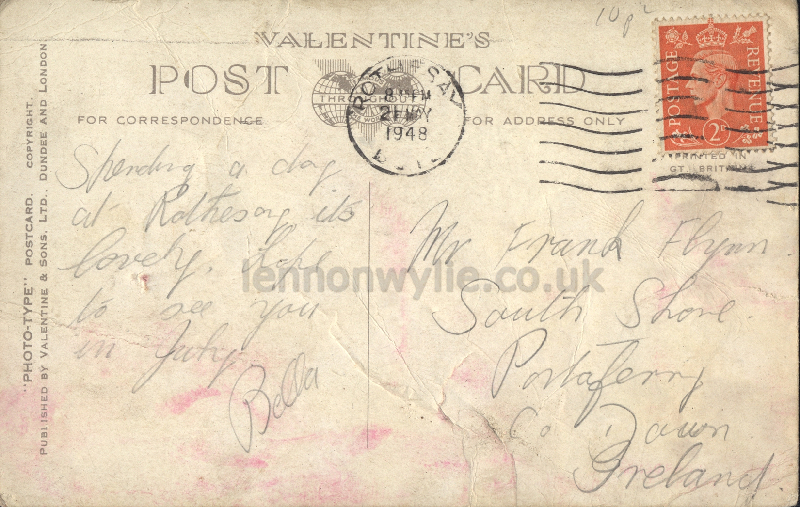 10p
VALENTINE'S
POST CARD
THROUGHOUT
FOR CORRESPONDENCE
FOR ADDRESS ONLY
ROTHESAY
8 PM
21 MY
1948
BUTE
POSTAGE
REVENUE
2D
PRINTED IN
GT. BRITAIN
"PHOTO-TYPE" POSTCARD. COPYRIGHT.
PUBLISHED BY VALENTINE & SONS, LTD., DUNDEE AND LONDON
Spending a day
at Rothesay its
lovely. Hope
to see you
in July
Bella
Mr Frank Flynn
South Shore
Portaferry
Co Down
Ireland.
lennonwylie.co.uk